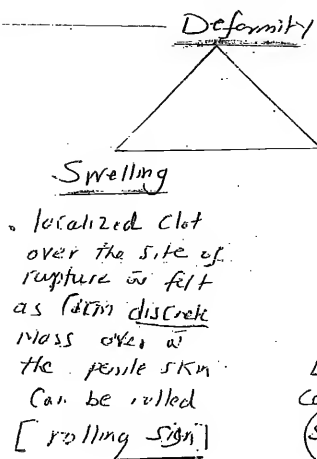 Deformity
Swelling
. localized clot
over the site of
rupture is felt
as firm discrete
mass over
the penile skin
Can be rolled
[ rolling sign ]